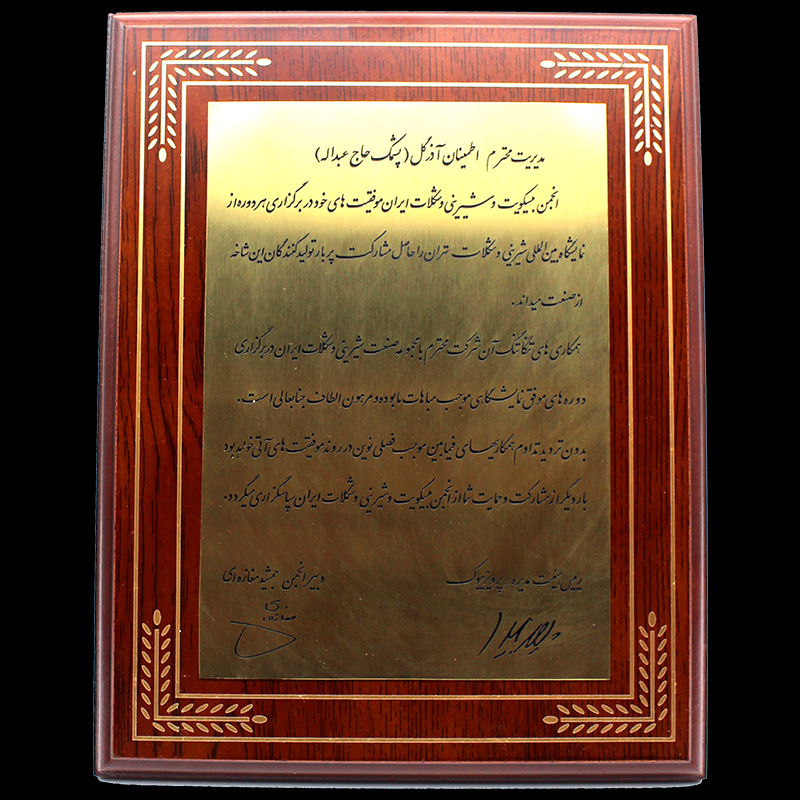 مدیریت محترم اطمینان آذر گل ( پشمک حاج عبداله )
انجمن بیسکویت و شیرینی و شکلات ایران موفقیت های خود در برگزاری هر دوره از
نمایشگاه بین المللی شیرینی و شکلات تهران را حاصل مشارکت پر بار تولید کنندگان این شاخه
از صنعت میداند .
همکاری های تنگاتنگ آن شرکت محترم با مجموعه صنعت شیرینی و شکلات ایران در برگزاری
دوره های موفق نمایشگاهی موجب مباهات ما بوده و مرهون الطاف جنابعالی است .
بدون تردید تداوم همکاریهای فیمابین موجب فصلی نوین در روند موفقیت های آتی خواهد بود
بار دیگر از مشارکت و حمایت شما از انجمن بیسکویت و شیرینی و شکلات ایران سپاسگزاری میگردد .
رییس هیئت مدیره پرویز
دبیر انجمن جمشید مغازه ای